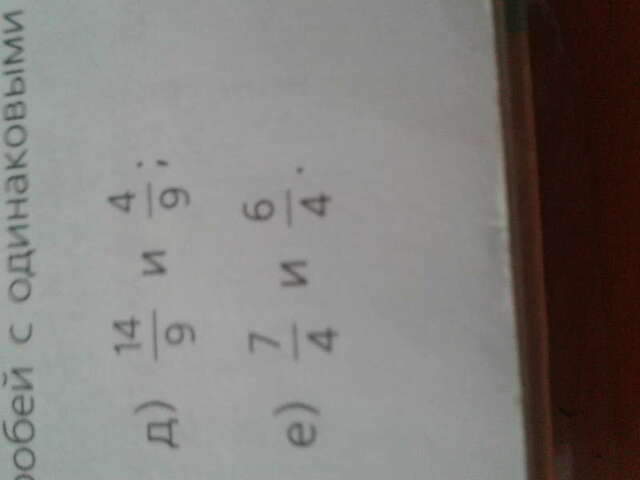 с одинаковыми
д) 14/9 и 4/9;
е) 7/4 и 6/4.